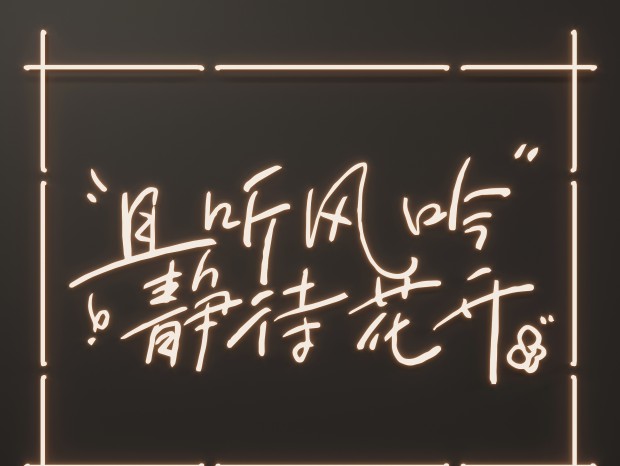 “且听风吟”
静待花开